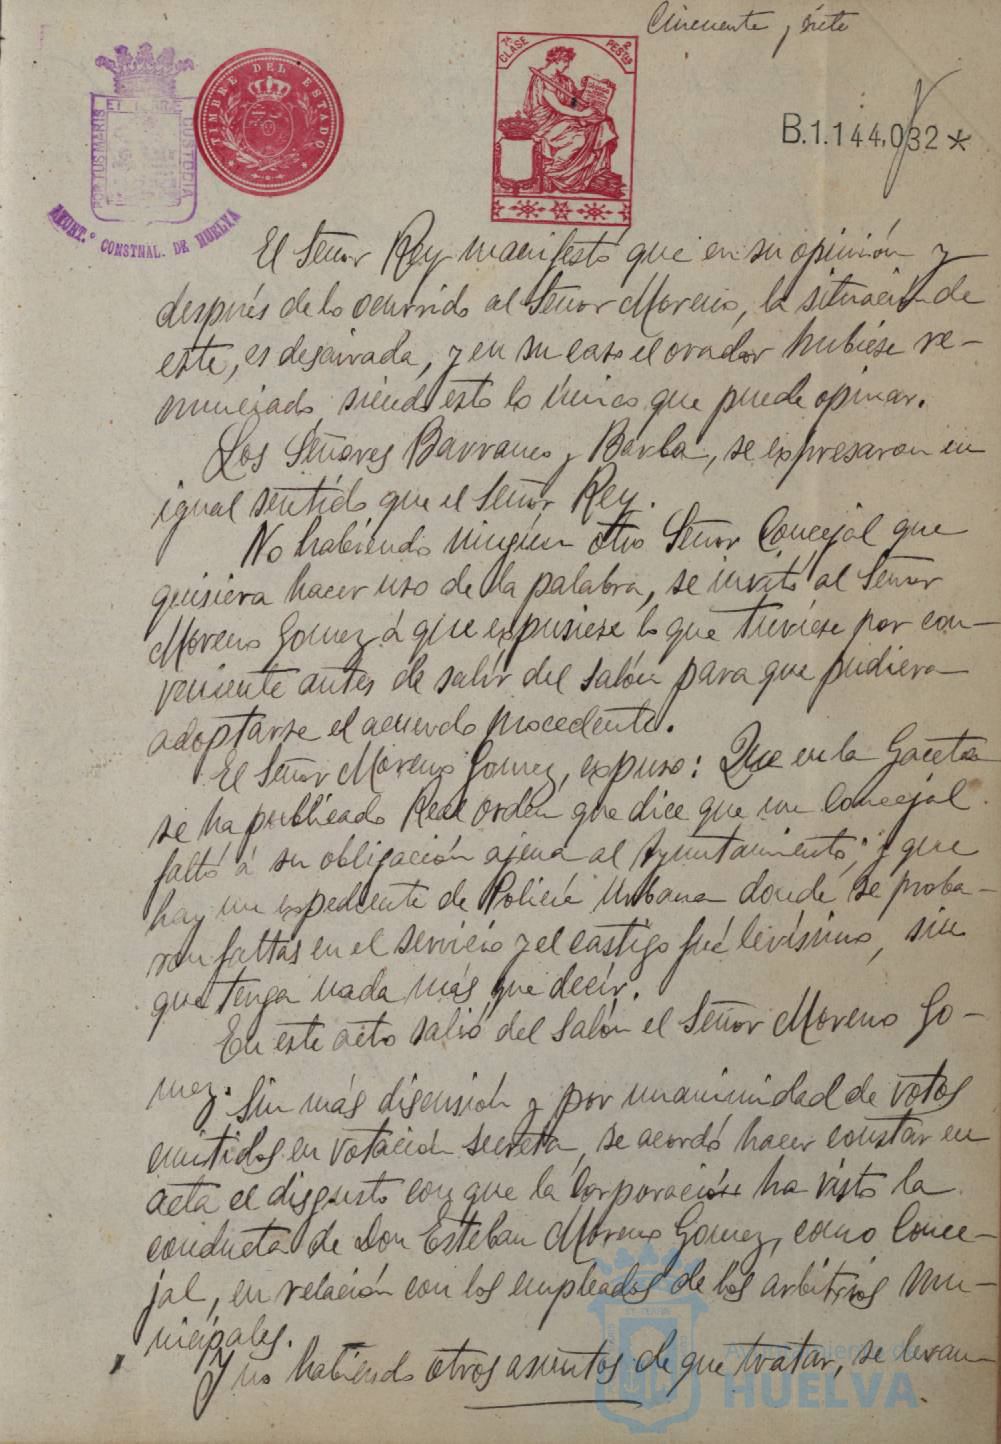 Cincuenta y siete
7ª CLASE
2 PESETAS
TIMBRE DEL ESTADO
B.1.144,032*
PORTUS MARIS ET TERRE CUSTODIA
AYUNT.º CONSTNAL. DE HUELVA
El Señor Rey manifestó que en su opinión y
después de lo ocurrido al Señor Moreno, la situación de
este, es desairada, y en su caso el orador hubiese re-
nunciado, siendo esto lo único que puede opinar.
Los Señores Barranco y Barba, se expresaron en
igual sentido que el Señor Rey.
No habiendo ningún otro Señor Concejal que
quisiera hacer uso de la palabra, se invitó al Señor
Moreno Gomez á que expusiese lo que tuviese por con-
veniente antes de salir del salón para que pudiera
adoptarse el acuerdo procedente.
El Señor Moreno Gomez, expuso: Que en la Gaceta
se ha publicado Real orden que dice que un Concejal
faltó á su obligación ajena al Ayuntamiento; y que
hay un expediente de Policía Urbana donde se proba-
ron faltas en el servicio y el castigo fué levísimo, sin
que tenga nada más que decir.
En este acto salió del Salón el Señor Moreno Go-
mez.
Sin más discusión y por unanimidad de votos
emitidos en votación secreta, se acordó hacer constar en
acta el disgusto con que la Corporación ha visto la
conducta de Don Esteban Moreno Gomez, como Conce-
jal, en relación con los empleados de los arbitrios mu-
nicipales.
Y no habiendo otros asuntos de que tratar, se levan-
Ayuntamiento de
HUELVA